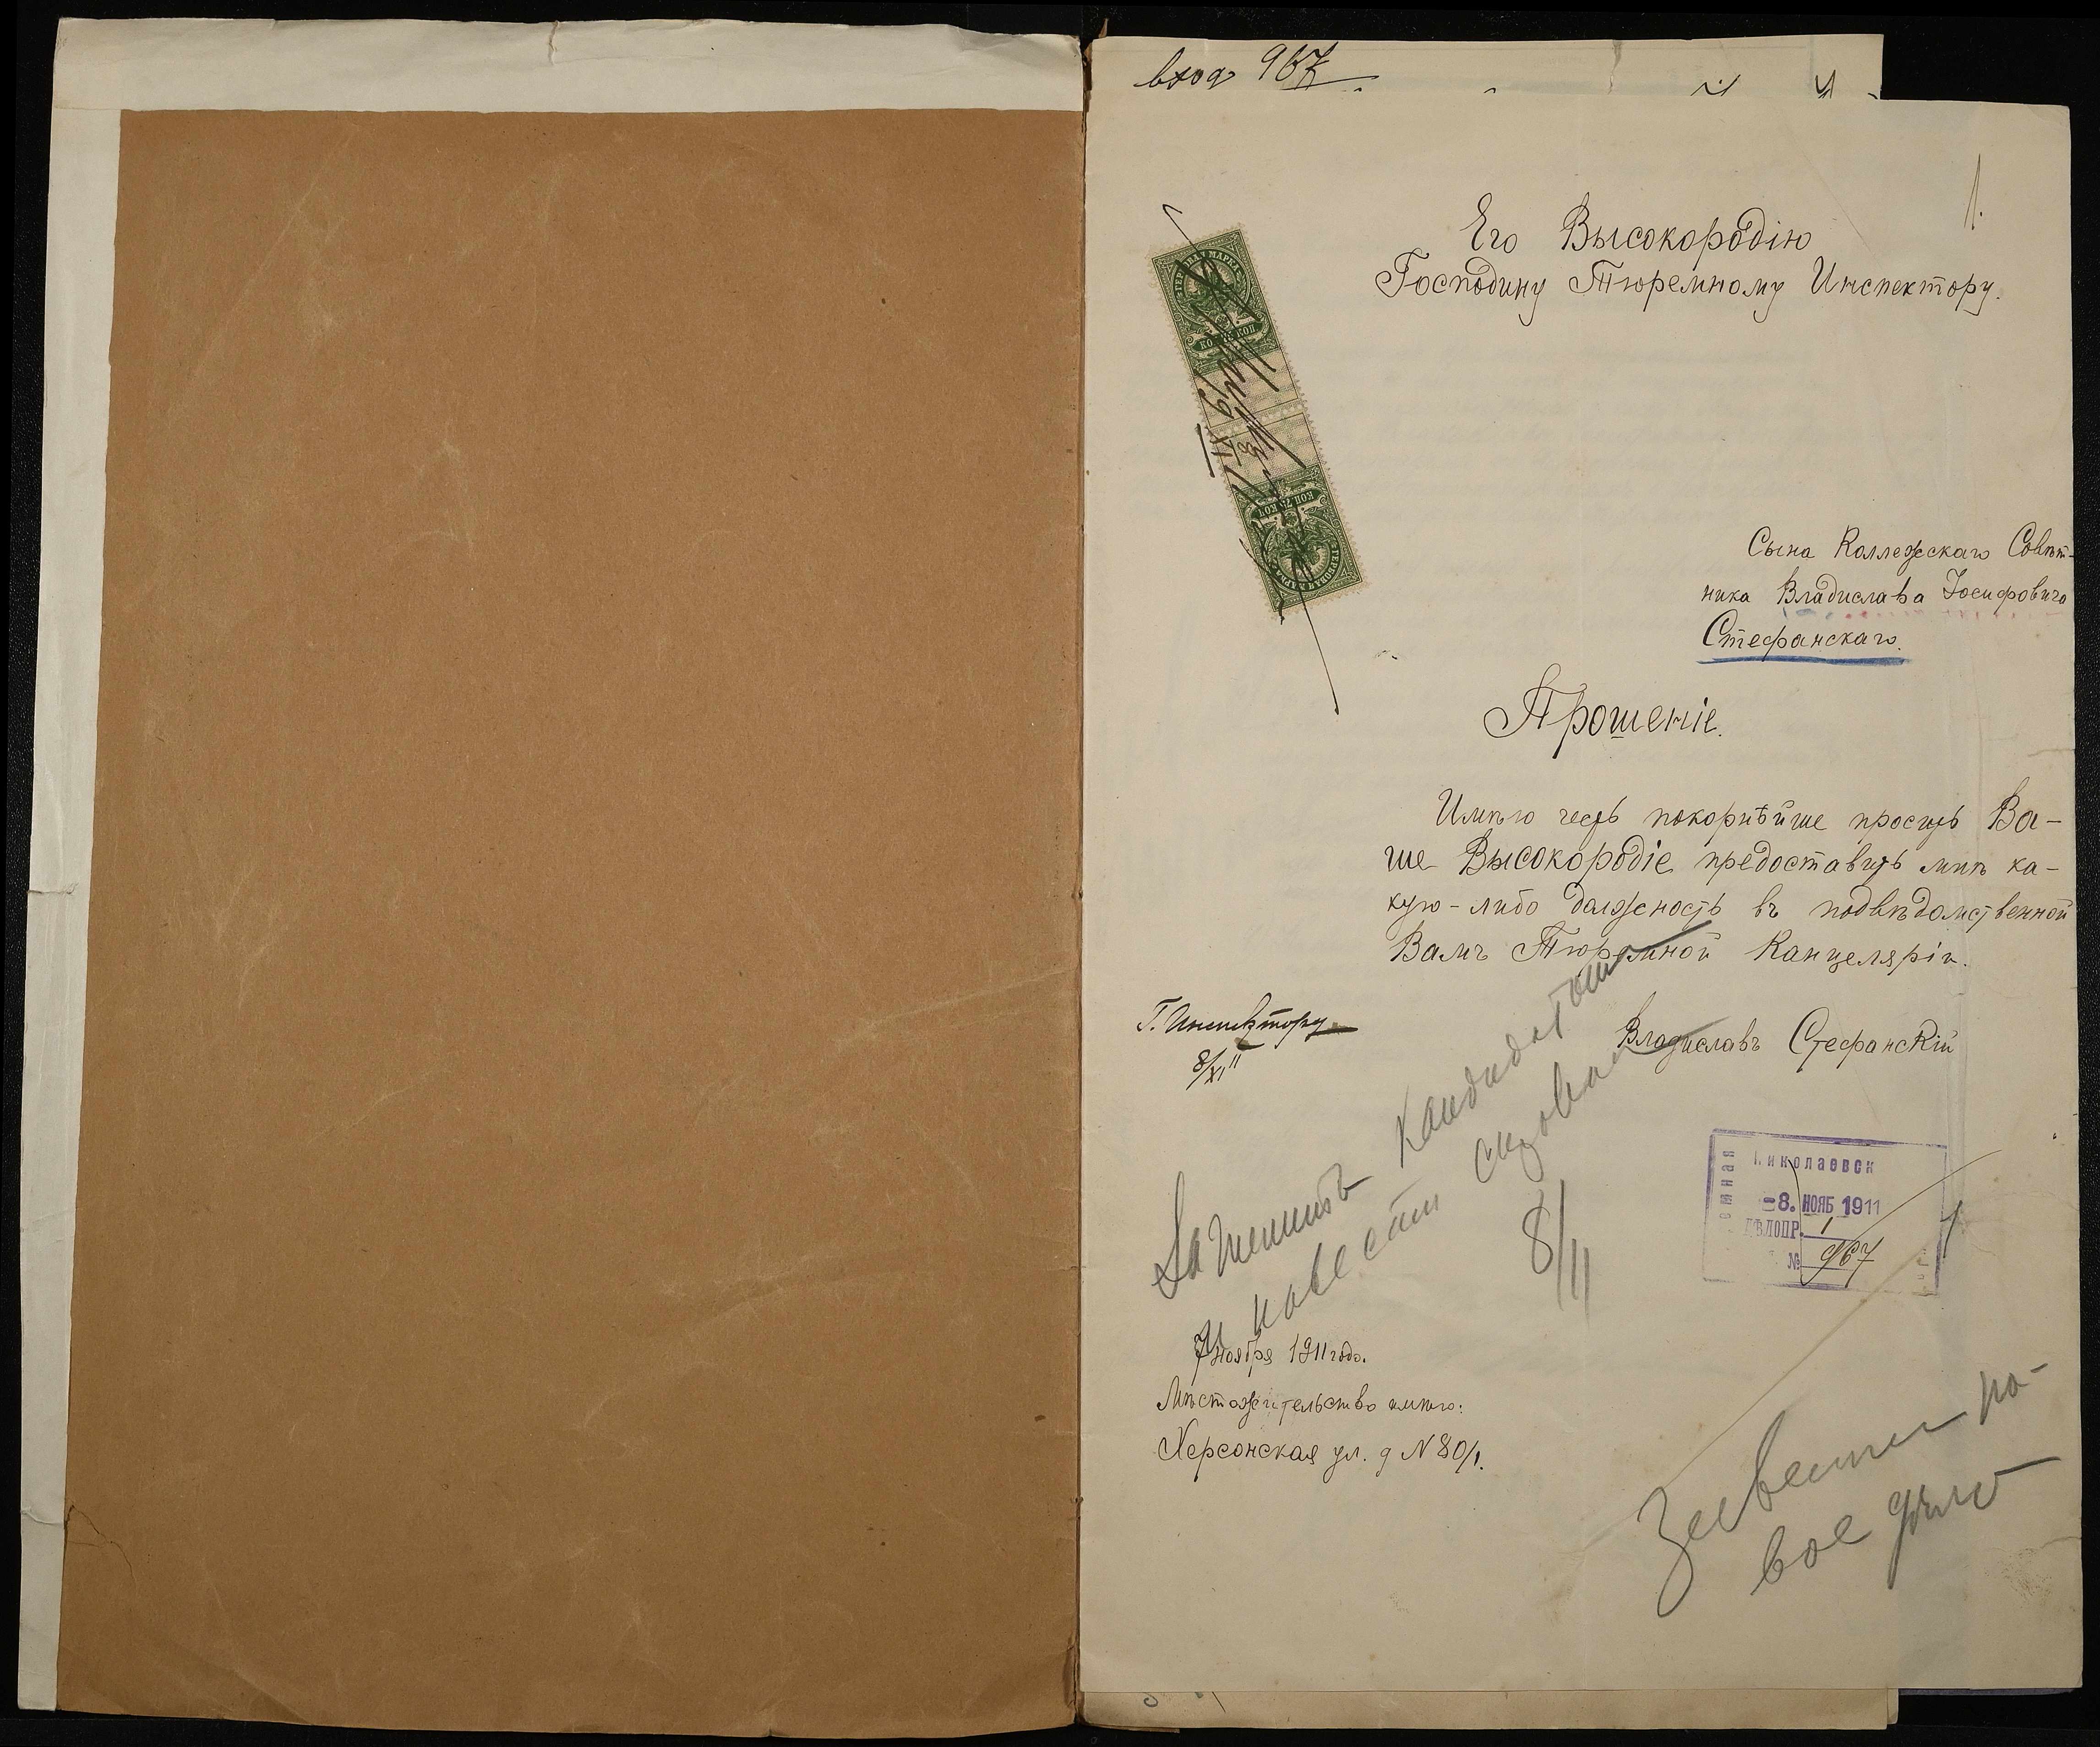 вход 967
1.
Его Высокородію
Господину Тюремному Инспектору.
ГЕРБОВАЯ МАРКА
КОП. 75 КОП.
КОП. 75 КОП.
ГЕРБОВАЯ МАРКА
Сына Коллежскаго Совѣт-
ника Владислава Іосифовича
Стефанскаго.
Прошеніе.
Имѣю честь покорнѣйше просить Ва-
ше Высокородіе предоставить мнѣ ка-
кую-либо должность въ подвѣдомственной
Вамъ Тюремной Канцеляріи.
Г. Инспектору
8/XI 11
Владиславъ Стефанскій
кандидатомъ
и
8/11
Николаевск
8. НОЯБ 1911
ДѢЛОПР. 1
№ 967
7 ноября 1911 года.
Мѣстожительство имѣю:
Херсонская ул. д N 80/1.
Завести но-
вое дѣло